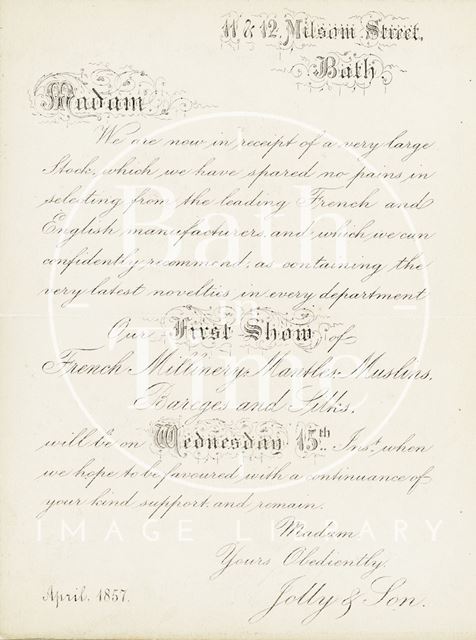 11 & 12, Milsom Street,
Bath.
Madam
We are now in receipt of a very large
Stock, which we have spared no pains in
selecting from the leading French and
English manufacturers, and which we can
confidently recommend, as containing the
very latest novelties in every department
Our First Show of
French Millinery, Mantles, Muslins,
Bareges and Silks,
will be on Wednesday 15th Inst. when
we hope to be favoured with a continuance of
your kind support, and remain,
Madam,
Yours Obediently,
Jolly & Son.
April, 1857.
Bath
in
Time
IMAGE LIBRARY